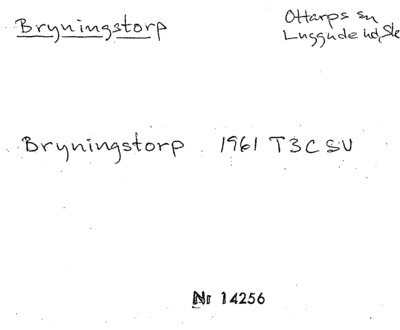 Bryningstorp
Ottarps sn
Luggude hd, Sk
Bryningstorp 1961 T3C SV
Nr 14256